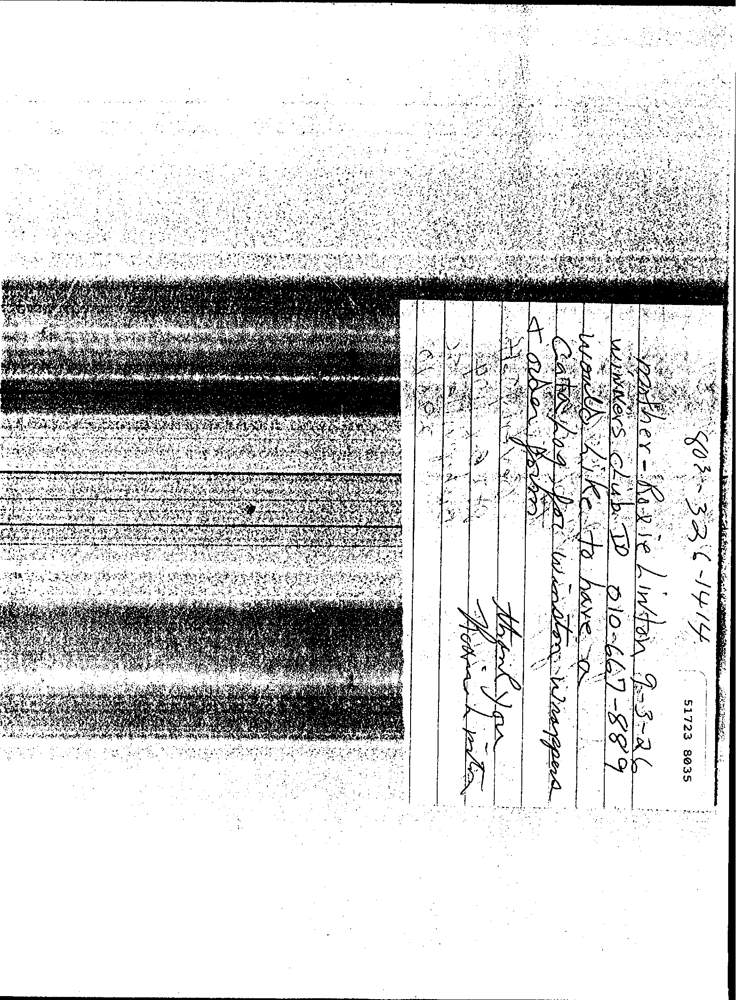 803-326-1414
51723 8035
mother - Roxie Linton 9-3-26
winners club ID 010-667-889
would like to have a
Catalog for winston wrappers
& order form
thank you
Linton